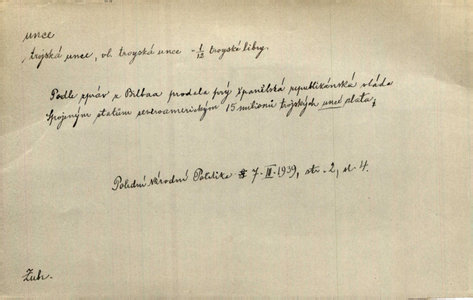 unce
trojská unce, vl. troyská unce - 1/12 troyské libry.
Podle zpráv z Bilbaa prodala prý španělská republikánská vláda
Spojeným státům severoamerickým 15 milionů trojských uncí zlata,
Polední Národní Politika 7. III. 1939, str. 2, sl. 4.
Zubr.